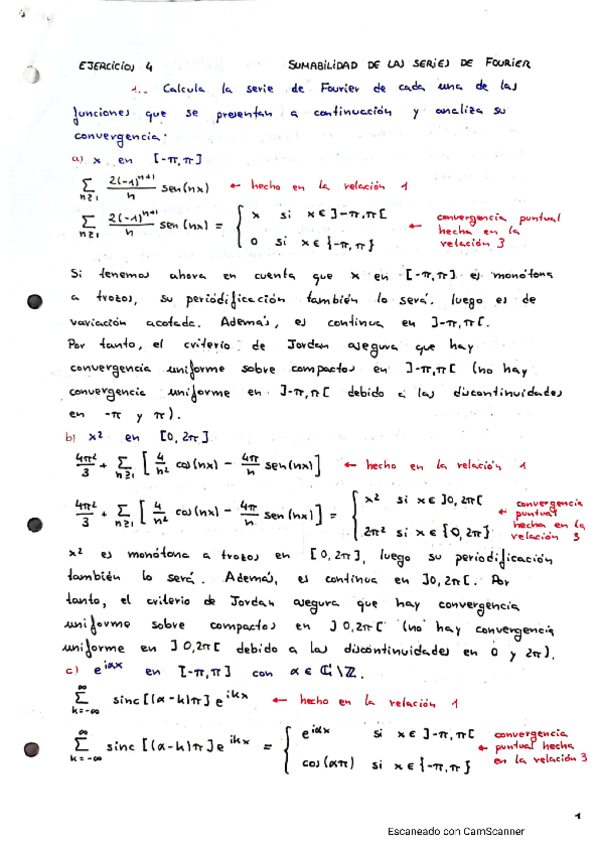 EJERCICIOS 4 SUMABILIDAD DE LAS SERIES DE FOURIER
1.- Calcula la serie de Fourier de cada una de las
funciones que se presentan a continuación y analiza su
convergencia:
a) x en [-π,π]
∑_{n≥1} 2(-1)^{n+1}/n sen(nx) ← hecho en la relación 1
∑_{n≥1} 2(-1)^{n+1}/n sen(nx) = { x si x∈]-π,π[ ; 0 si x∈{-π,π} ← convergencia puntual hecha en la relación 3
Si tenemos ahora en cuenta que x en [-π,π] es monótona
a trozos, su periódificación también lo será. luego es de
variación acotada. Además, es continua en ]-π,π[.
Por tanto, el criterio de Jordan asegura que hay
convergencia uniforme sobre compactos en ]-π,π[ (no hay
convergencia uniforme en ]-π,π[ debido a las discontinuidades
en -π y π).
b) x² en [0,2π].
4π²/3 + ∑_{n≥1} [4/n² cos(nx) - 4π/n sen(nx)] ← hecho en la relación 1
4π²/3 + ∑_{n≥1} [4/n² cos(nx) - 4π/n sen(nx)] = { x² si x∈]0,2π[ ; 2π² si x∈{0,2π} ← convergencia puntual hecha en la relación 3
x² es monótona a trozos en [0,2π], luego su periodificación
también lo será. Además, es continua en ]0,2π[. Por
tanto, el criterio de Jordan asegura que hay convergencia
uniforme sobre compactos en ]0,2π[ (no hay convergencia
uniforme en ]0,2π[ debido a las discontinuidades en 0 y 2π).
c) e^{iαx} en [-π,π] con α∈ℂ\ℤ.
∑_{k=-∞}^{∞} sinc[(α-k)π] e^{ikx} ← hecho en la relación 1
∑_{k=-∞}^{∞} sinc[(α-k)π] e^{ikx} = { e^{iαx} si x∈]-π,π[ ; cos(απ) si x∈{-π,π} ← convergencia puntual hecha en la relación 3
1
Escaneado con CamScanner